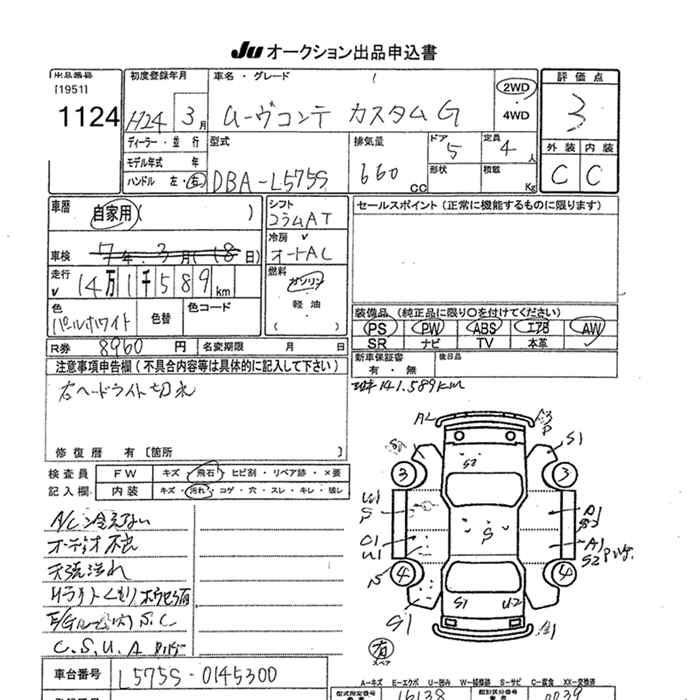 JU オークション出品申込書
出品番号
[1951]
1124
初度登録年月
H24 3月
車名・グレード
ムーヴコンテ カスタムG
2WD
4WD
評価点
3
外装 内装
C C
ディーラー・並行
モデル年式 年
ハンドル 左・右
型式
DBA-L575S
排気量
660 CC
ドア
5
定員
4人
形状
積載
Kg
車歴
自家用( )
車検
7年 3月(18日)
走行
14万1千589km
シフト
コラムAT
冷房
オートAC
燃料
ガソリン
軽油
( )
セールスポイント (正常に機能するものに限ります)
色
パールホワイト
色替
色コード
R券 8960円
名変期限 月 日
装備品 (純正品に限り○を付けてください)
PS PW ABS エアB AW
SR ナビ TV 本革
新車保証書
有・無
後日品
141.589km
注意事項申告欄(不具合内容等は具体的に記入して下さい)
右ヘードライト切れ
修復歴 有〔箇所 〕
検査員
記入欄
FW キズ・飛石・ヒビ割・リペア跡・×要
内装 キズ・汚れ・コゲ・穴・スレ・キレ・破レ
A/C冷えない
オーディオ不良
天張汚れ
C.S.U.A
A2
A3
P
S1
S2
3
3
U1
S
C1
U1
S
A1
S2
A1
S2
4
4
S1
S1
U2
A1
有
スペア
車台番号 L575S-0145300
A-キズ E-エクボ U-凹み W-補修跡 S-サビ C-腐食 XX-交換済
型式指定番号
16138
類別区分番号
0039